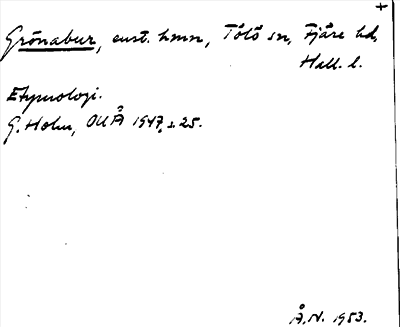 +
Grönabur, enst. hmn, Tölö sn, Fjäre hd,
Hall. l.
Etymologi.
G. Holm, OUÅ 1947, s. 25.
Å.N. 1953.